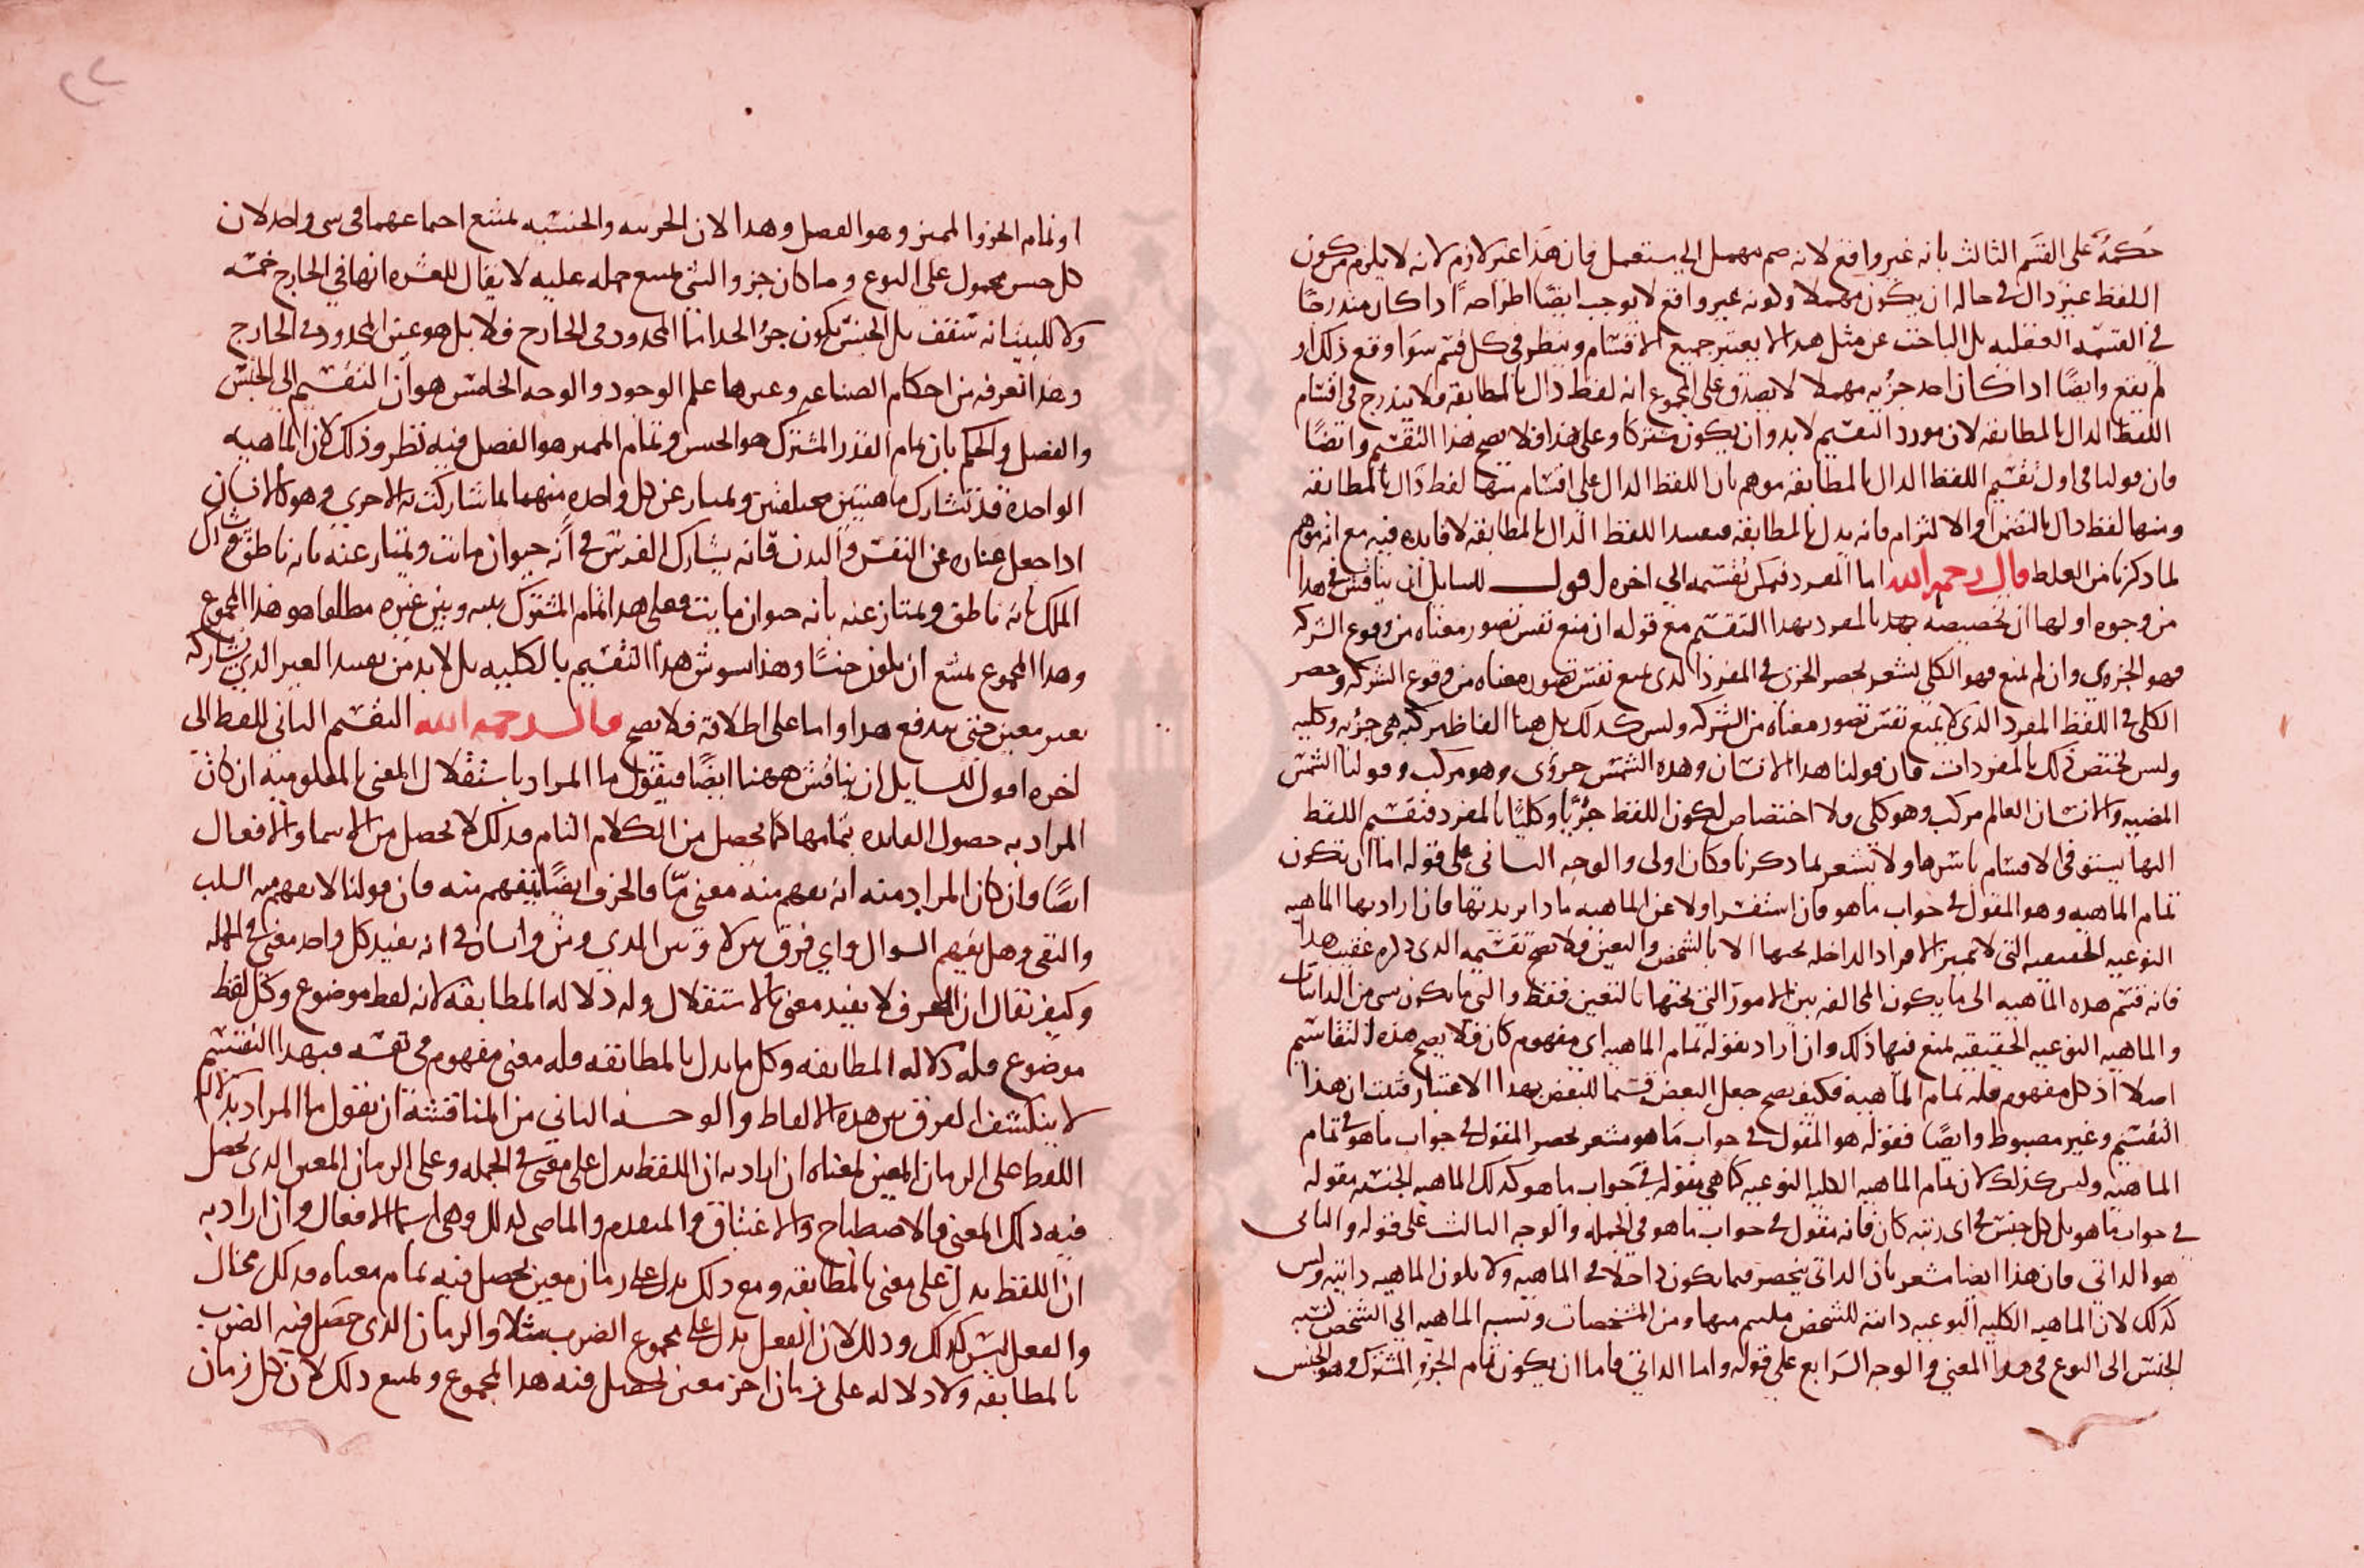 حكمه على القسم الثالث بانه غير واقع لانه ضم مهمل الى مستعمل فان هذا غير لازم لانه لا يلزم من كون
اللفظ غير دال في حاله ان يكون مهملا ولونه غير واقع لا يوجب ايضا اطراحه اذا كان مندرجا
في القسمه العقليه بل الباحث عن مثل هذا لا يعتبر جميع الاقسام وينظر في كل قسم سوا وقع ذلك او
لم يقع وايضا اذا كان احد جزئيه مهملا لا يصدق على المجموع انه لفظ دال بالمطابقه فلا يندرج في اقسام
اللفظ الدال بالمطابقه لان مورد التقسيم لا بد وان يكون مشتركا وعلى هذا فلا يصح هذا التقسيم وايضا
فان قولنا في اول تقسيم اللفظ الدال بالمطابقه موهم بان اللفظ الدال على اقسام منها لفظ دال بالمطابقه
ومنها لفظ دال بالتضمن او الالتزام فانه يدل بالمطابقه فتقييد اللفظ الدال بالمطابقه لا فايده فيه مع انه موهم
لما ذكرنا من الغلط قال رحمه الله اما المفرد فيمكن تقسيمه الى اخره اقول للسايل ان يناقش في هذا
من وجوه اولها ان تخصيصه بالمفرد بهذا التقسيم مع قوله ان منع نفس تصور معناه من وقوع الشركه
فهو الجزوي وان لم يمنع فهو الكلي يشعر بحصر الجزئ في المفرد الذي يمنع نفس تصور معناه من وقوع الشركه وحصر
الكلى في اللفظ المفرد الذي لا يمنع نفس تصور معناه من الشركه وليس كذلك بل هنا الفاظ مركبه هي جزئيه وكليه
وليس يختص ذلك بالمفردات فان قولنا هذا الانسان وهذه الشمس جزؤي وهو مركب وقولنا الشمس
المضيه والانسان العالم مركب وهو كلي ولا اختصاص لكون اللفظ جزئيا وكليا بالمفرد فتقسيم اللفظ
اليها يستوفي الاقسام باسرها ولا يشعر بما ذكرنا وكان اولى والوجه الثاني على قوله اما ان تكون
تمام الماهيه وهو المقول في جواب ماهو فان استفسر اولا عن الماهيه ماذا يريد بها فان اراد بها الماهيه
النوعيه الحقيقيه التي لا تميز الافراد الداخله تحتها الا بالتشخص والتعين فلا يصح تقسيمه الذي ذكره عقيب هذا
فانه قسم هذه الماهيه الى ما يكون المخالفه بين الامور التي تحتها بالتعين فقط والتي ما يكون بشي من الذاتيات
والماهيه النوعيه الحقيقيه يمنع فيها ذلك وان اراد بقوله تمام الماهيه اي مفهوم كان فلا يصح هذه التقاسيم
اصلا اذ كل مفهوم فله تمام الماهيه فكيف يصح جعل البعض قسما للبعض بهذا الاعتبار فثبت ان هذا
التقسيم غير مضبوط وايضا فقوله هو المقول في جواب ما هو مشعر بحصر المقول في جواب ما هو في تمام
الماهيه وليس كذلك لان تمام الماهيه الكليه النوعيه كما هي مقوله في جواب ما هو كذلك الماهيه الجنسيه مقوله
في جواب ما هو بل كل جنس في اي رتبه كان فانه مقول في جواب ما هو في الجمله والوجه الثالث على قوله والثاني
هو الذاتي فان هذا ايضا مشعر بان الذاتي ينحصر فيما يكون داخلا في الماهيه ولا يكون الماهيه ذاتيه وليس
كذلك لان الماهيه الكليه النوعيه ذاتيه للشخص ملتئم منها ومن المشخصات ونسبه الماهيه الى الشخص كنسبه
الجنس الى النوع في هذا المعنى والوجه الرابع على قوله واما الذاتي فاما ان يكون تمام الجزو المشترك وهو الجنس
او تمام الجزو المميز وهو الفصل وهذا لان الجزييه والجنسيه يمتنع اجتماعهما في شي واحد لان
كل جنس محمول على النوع وما كان جزو الشي يمتنع حمله عليه لا يقال للعشره انها في الخارج خمسه
ولا للبيت انه سقف بل الجنس يكون جزؤ الحد اما المحدود في الخارج فلا بل هو عين المحدود في الخارج
وهذا تعرفه من احكام الصناعه وغيرها علم الوجود والوجه الخامس هو ان التقسيم الى الجنس
والفصل والحكم بان تمام القدر المشترك هو الجنس وتمام المميز هو الفصل فيه نظر وذلك لان الماهيه
الواحده قد تشارك ماهيتين مختلفتين وتمتاز عن كل واحده منهما بما شاركت به الاخرى وهو كالانسان
اذا جعل عباره عن النفس والبدن فانه يشارك الفرس في انه حيوان مائت ويمتاز عنه بانه ناطق ويشارك
الملك بانه ناطق ويمتاز عنه بانه حيوان مايت فعلى هذا تمام المشترك بينه وبين غيره مطلقا هو هذا المجموع
وهذا المجموع يمتنع ان يكون جنسا وهذا يشوش هذا التقسيم بالكليه بل لا بد من تقييد الغير الذي يشاركه
بغير معين حتى يندفع هذا واما على اطلاقه فلا يصح قال رحمه الله التقسيم الثاني للفظ الى
اخره اقول للسايل ان يناقش ههنا ايضا فيقول ما المراد باستقلال المعنى بالمعلوميه ان كان
المراد به حصول الفايده بتمامها كما يحصل من الكلام التام فذلك لا يحصل من الاسما والافعال
ايضا وان كان المراد منه ان يفهم منه معنى ما فالحرف ايضا يفهم منه فان قولنا لا يفهم منه السلب
والنفي وهل يفهم السوال واي فرق بين لا وبين المدي ومن وانسان في انه يفيد كل واحد معنى في الجمله
وكيف يقال ان الحرف لا يفيد معنى بالاستقلال وله دلاله المطابقه لانه لفظ موضوع وكل لفظ
موضوع فله دلاله المطابقه وكل ما يدل بالمطابقه فله معنى مفهوم في نفسه فبهذا التقسيم
لا ينكشف الفرق بين هذه الالفاظ والوجه الثاني من المناقشه ان نقول ما المراد بدلاله
اللفظ على الزمان المعين لمعناه ان اراد به ان اللفظ يدل على معنى في الجمله وعلى الزمان المعين الذي يحصل
فيه ذلك المعنى فالاصطباح والاغتباق والمتقدم والماضي كذلك وهي اسما لا افعال وان اراد به
ان اللفظ يدل على معنى بالمطابقه ومع ذلك يدل على زمان معين يحصل فيه تمام معناه فذلك محال
والفعل ليس كذلك وذلك لان الفعل يدل على مجموع الضرب مثلا والزمان الذي حصل فيه الضرب
بالمطابقه ولا دلاله له على زمان اخر معين يحصل فيه هذا المجموع ويمتنع ذلك لان كل زمان